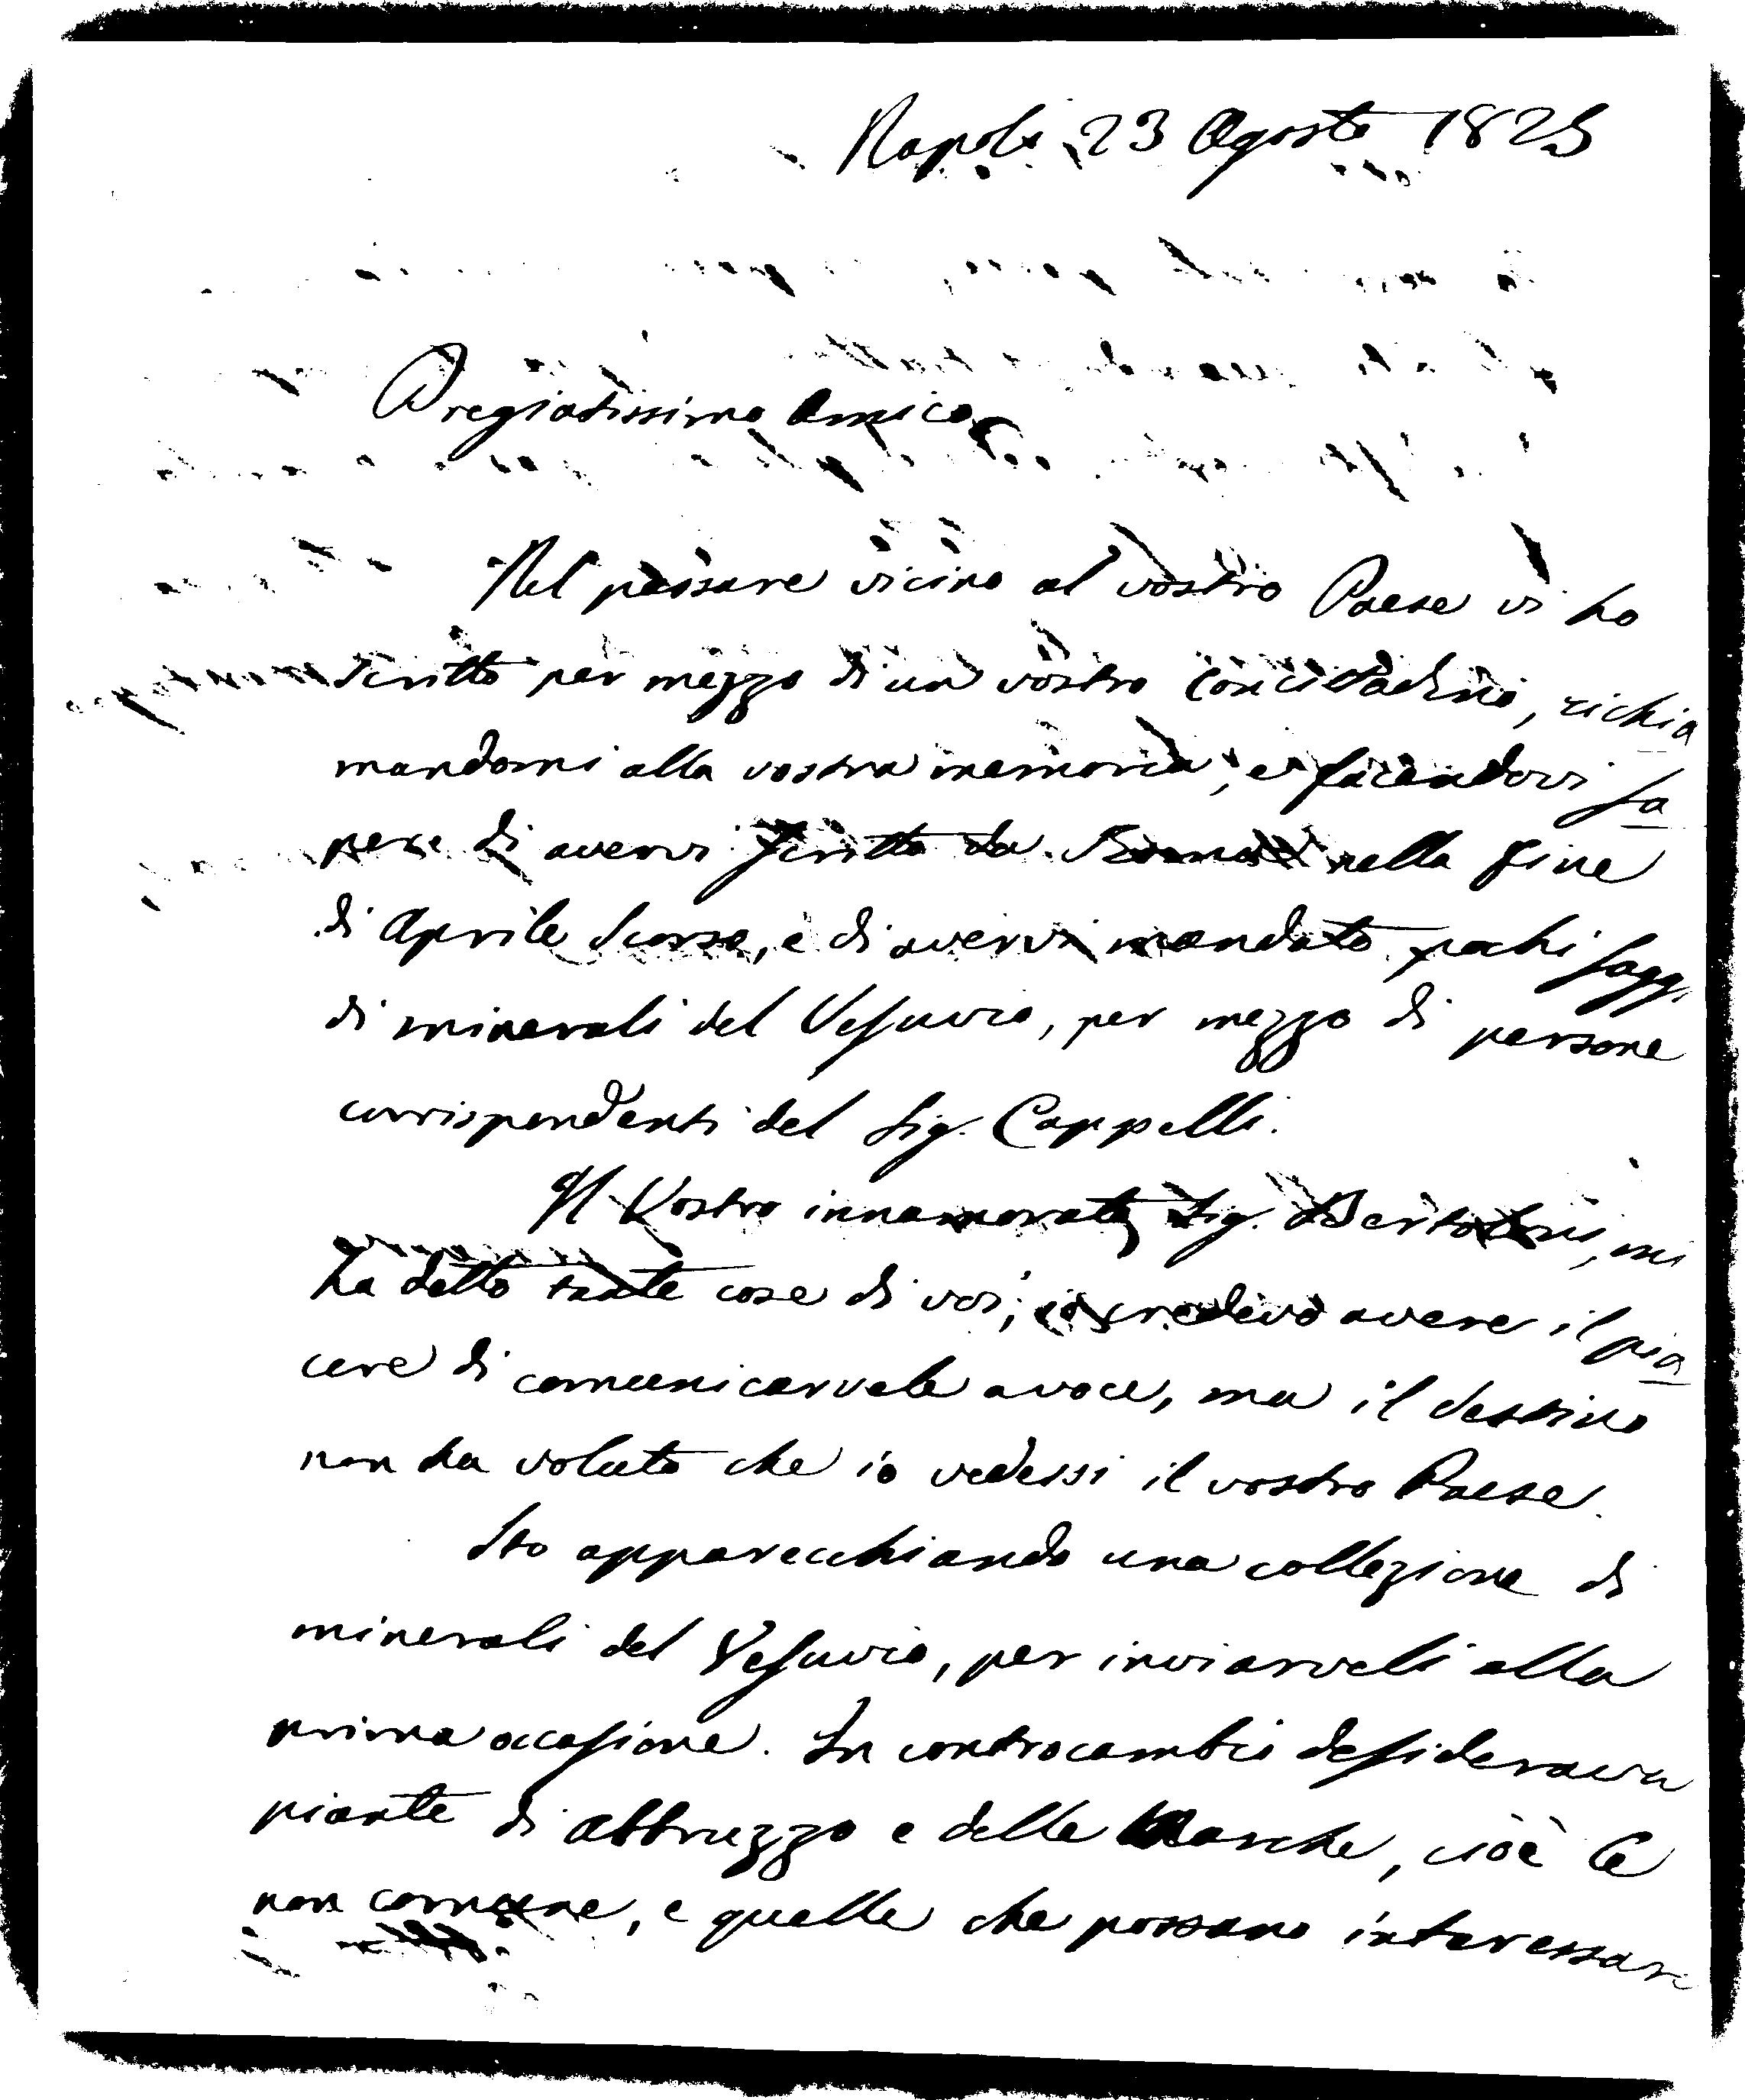 Napoli 23 Agosto 1825
Pregiatissimo Amico
Nel passare vicino al vostro Paese vi ho
scritto per mezzo di un vostro concittadino, richia
mandomi alla vostra memoria, e facendovi sa
pere di avervi scritto da Roma nella fine
di Aprile scorso, e di avervi mandato pochi saggi
di minerali del Vesuvio, per mezzo di persone
corrispondenti del Sig. Cappelli.
Il Vostro innamorato Sig. Bertoloni, mi
ha detto tante cose di voi, io credevo avere il pia
cere di comunicarvele a voce, ma il destino
non ha voluto che io vedessi il vostro Paese.
Sto apparecchiando una collezione di
minerali del Vesuvio, per inviarveli alla
prima occasione. In controcambio desiderava
piante di Abbruzzo e delle Marche, cioè le
non comune, e quelle che possano interessare